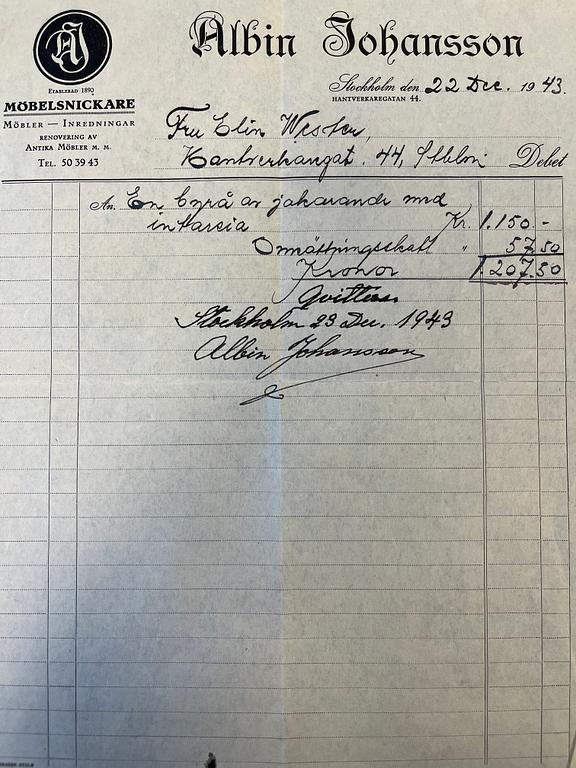 AJ
Albin Johansson
ETABLERAD 1890
MÖBELSNICKARE
MÖBLER — INREDNINGAR
RENOVERING AV
ANTIKA MÖBLER M. M.
TEL. 50 39 43
Stockholm den 22 Dec. 1943.
HANTVERKAREGATAN 44.
Fru Elin Wester,
Hantverkargat. 44, Sthlm. Debet
An. En byrå av jakaranda med
intarsia Kr. 1.150.-
Omsättningsskatt " 57.50
Kronor 1.207.50
Qvitteras
Stockholm 23 Dec. 1943
Albin Johansson